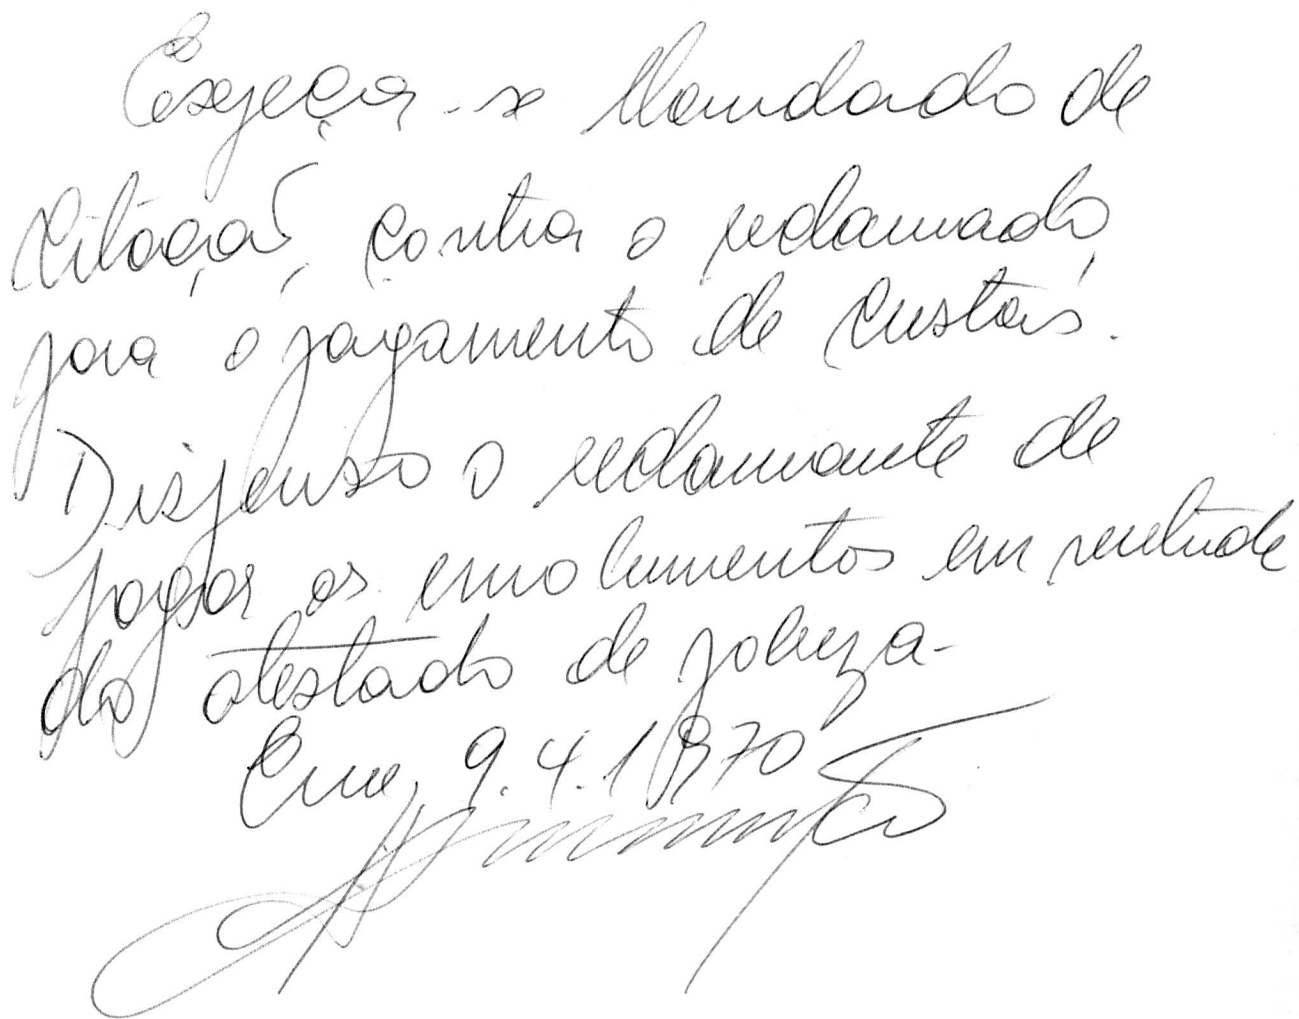 Expeça-se Mandado de
Citação, contra o reclamado,
para o pagamento de custas.
Dispenso o reclamante de
pagar os emolumentos em virtude
do atestado de pobreza.
Em, 9.4.1970